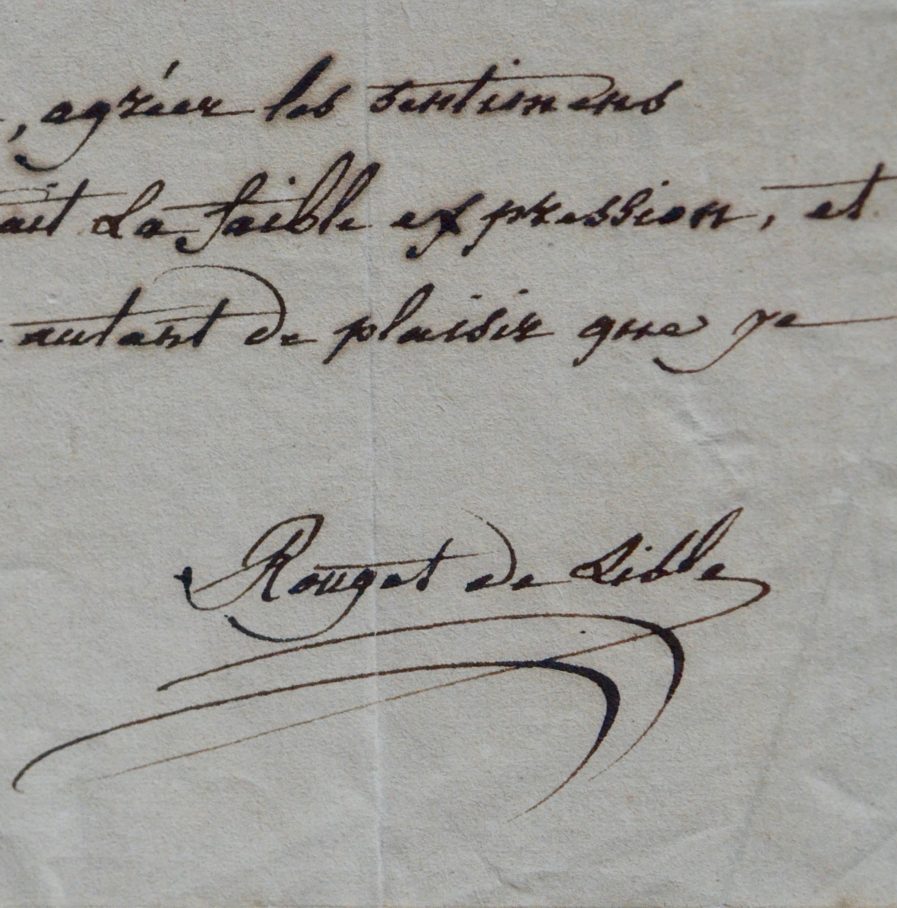 , agréer les sentimens
ait La faible expression, et
autant de plaisir que je
Rouget de Lisle